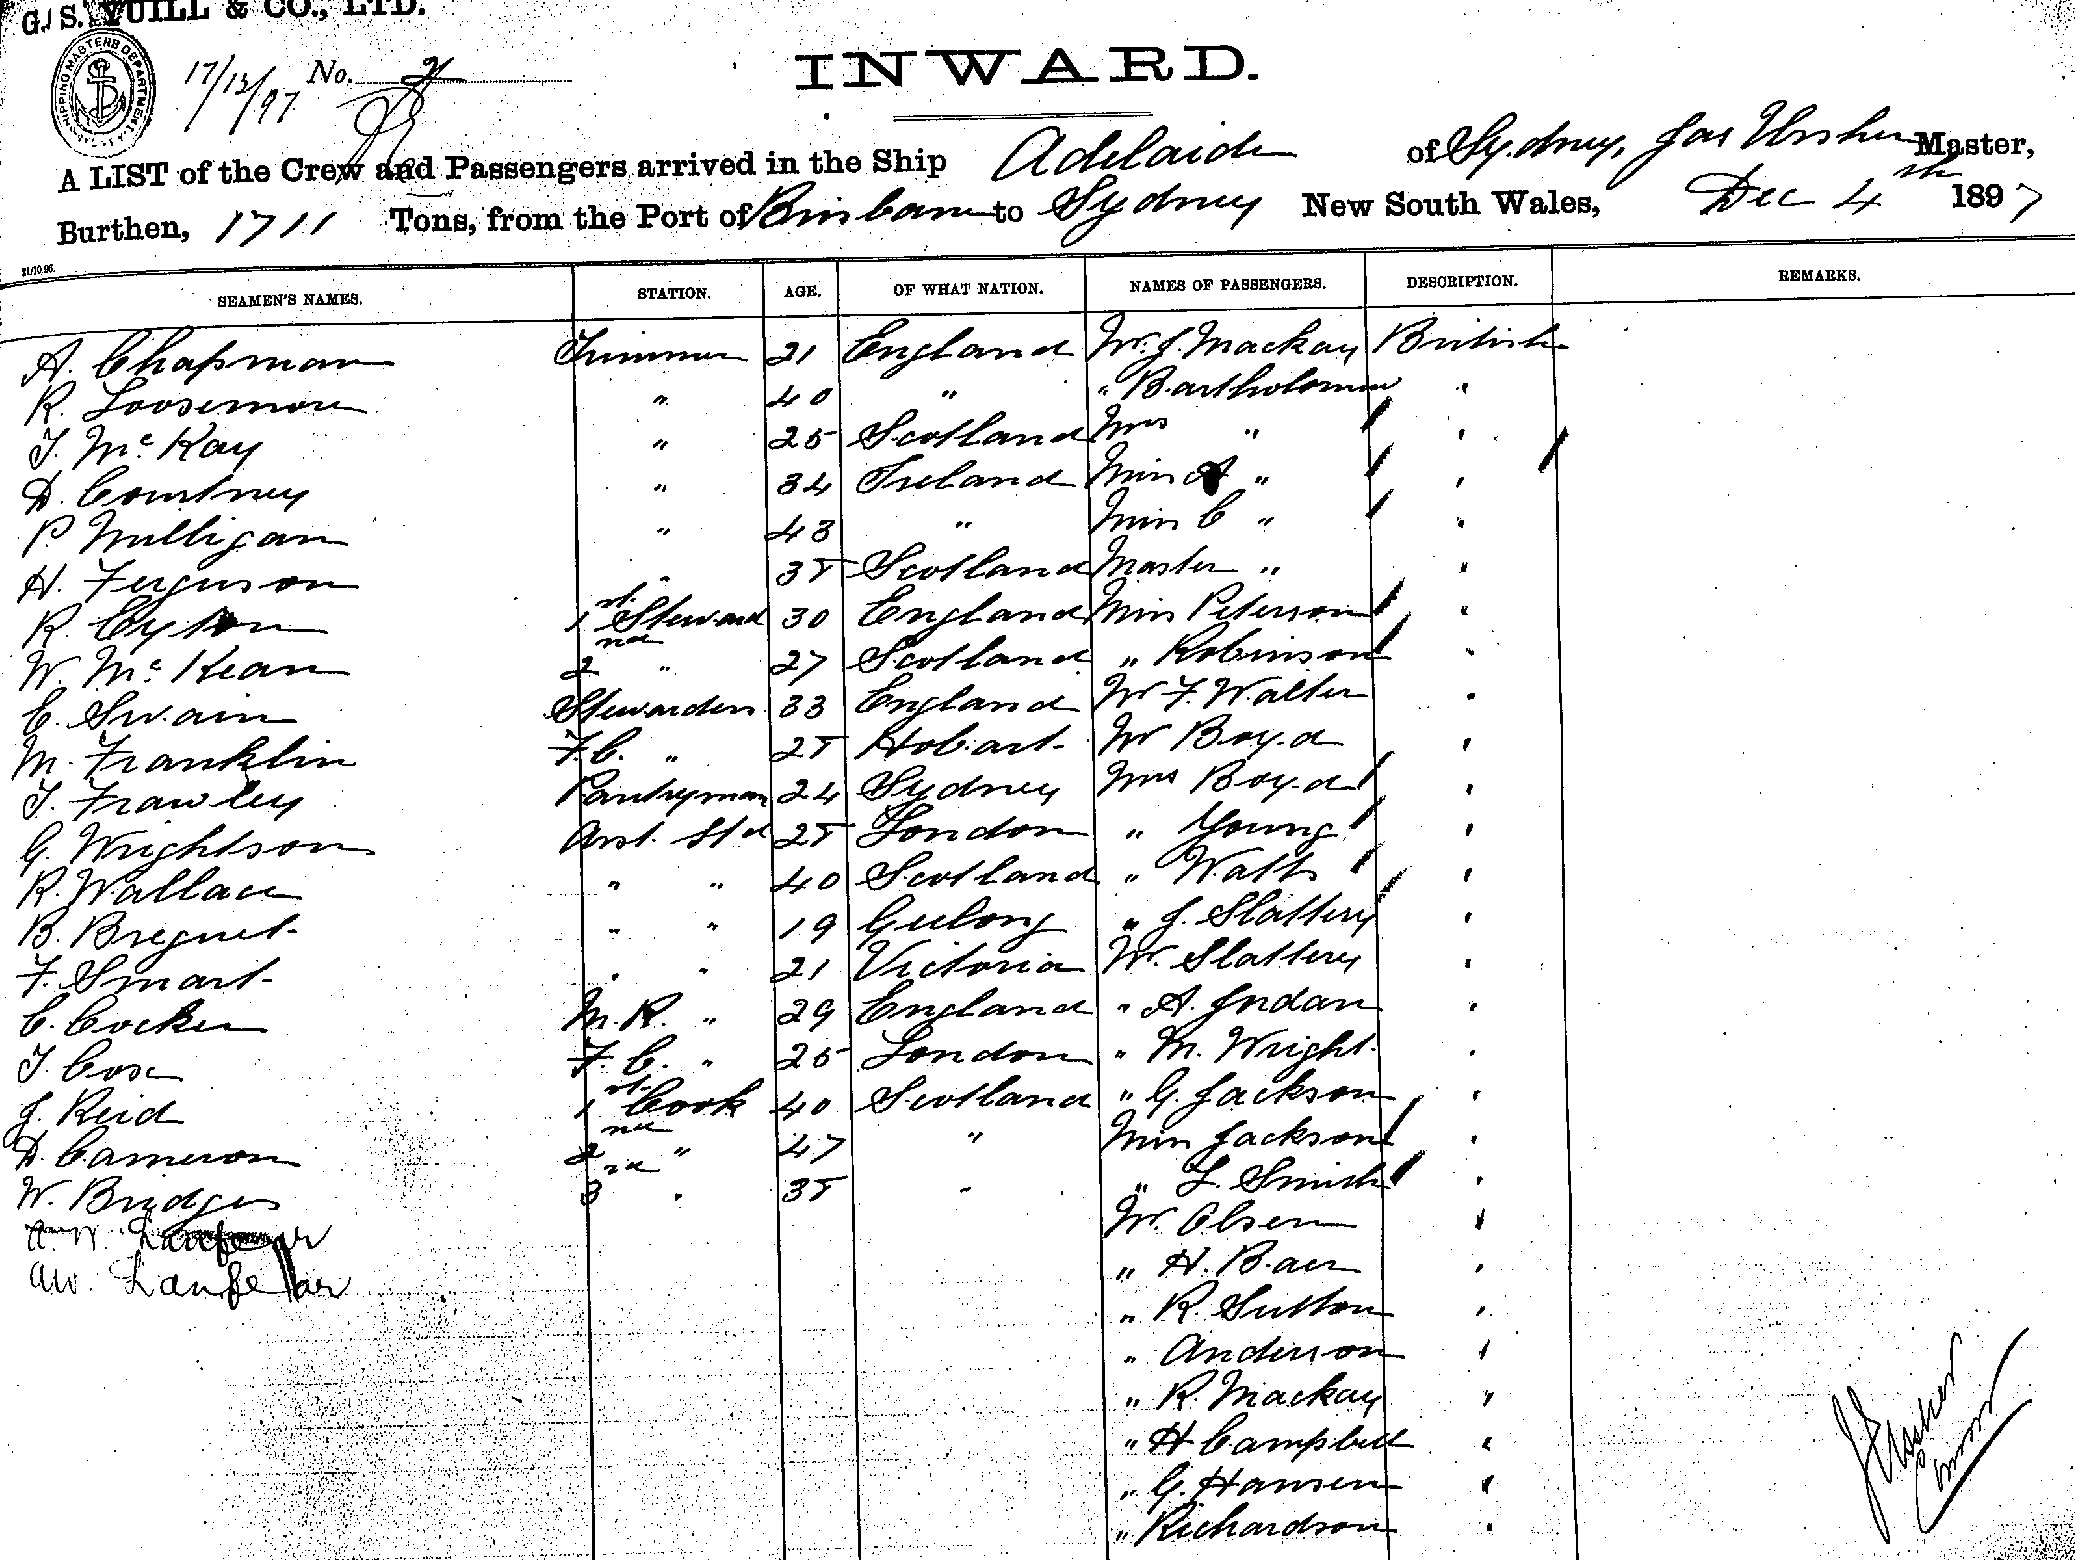 G. S. YUILL & CO., LTD.
SHIPPING MASTERS DEPARTMENT
17/12/97 No. 2
INWARD.
A LIST of the Crew and Passengers arrived in the Ship Adelaide of Sydney, Jas Ussher Master,
Burthen, 1711 Tons, from the Port of Brisbane to Sydney New South Wales, Dec 4th 1897
21/10 96.
SEAMEN'S NAMES. STATION. AGE. OF WHAT NATION. NAMES OF PASSENGERS. DESCRIPTION. REMARKS.
A. Chapman Trimmer 21 England Mr. J. Mackay British
R. Loosemore " 40 " " Bartholomew "
T. McKay " 25 Scotland Mrs " "
D. Courtney " 34 Ireland Miss A " "
P. Mulligan " 43 " Miss C " "
H. Ferguson " 35 Scotland Master " "
R. Cyton 1st Steward 30 England Miss Peterson "
W. McKean 2nd " 27 Scotland " Robinson "
C. Swain Stewardess 33 England Mr F. Walter "
M. Franklin F.C. " 25 Hobart Mr Boyd "
T. Frawley Pantryman 24 Sydney Mrs Boyd "
G. Wrightson Asst. Std 25 London " Young "
R. Wallace " " 40 Scotland " Watts "
B. Breguet " " 19 Geelong " J. Slattery "
F. Smart " " 21 Victoria Mr. Slattery "
C. Cocker M.R. " 29 England " A. Jordan "
T. Cox F.C. " 25 London " M. Wright "
J. Reid 1st Cook 40 Scotland " G. Jackson "
D. Cameron 2nd " 47 " Miss Jackson "
W. Bridges 3rd " 35 " " L. Smith "
A. W. Mr. Olsen "
AW. " H. Baer "
" R. Sutton "
" Anderson "
" R. Mackay "
" H Campbell "
" G. Hansen "
" Richardson "
J Ussher